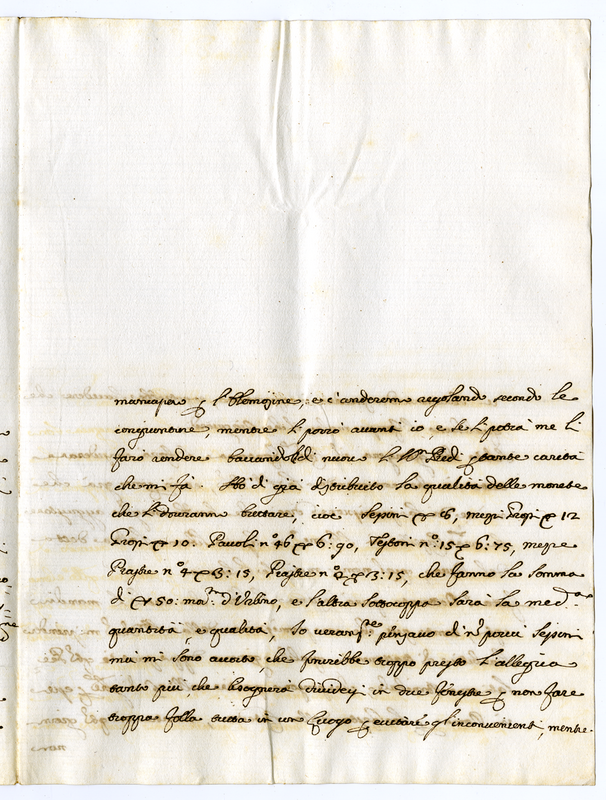 mancare p l'Elemosine, e c'anderemo regolando secondo le
congiunture, mentre li porrò avanti io, e se si potrà me li
farò rendere baciando di nuovo piedi tante carità
che mi fà. Ho di già distribuito la qualità delle monete
che si dovranno buttare, cioè Sesini 6, mezzi Grossi 12
Grossi 10. Pavoli n.º 46 6:90, Testoni n.º 15 6:75, mezze
Piastre n.º 4 : 15, Piastre n.º 3:15, che fanno la somma
di 50: mo.ta d'Urbino, e l'altra sottocoppa sarà la med.ma
quantità, e qualità, Io veram.te pensavo di porci Sesini
mà mi sono avvisto, che finirebbe troppo presto l'allegria
tanto più che bisognerà dividersi in due finestre p non fare
troppa folla tutta in un luogo p evitare gl'inconvenienti, mentre